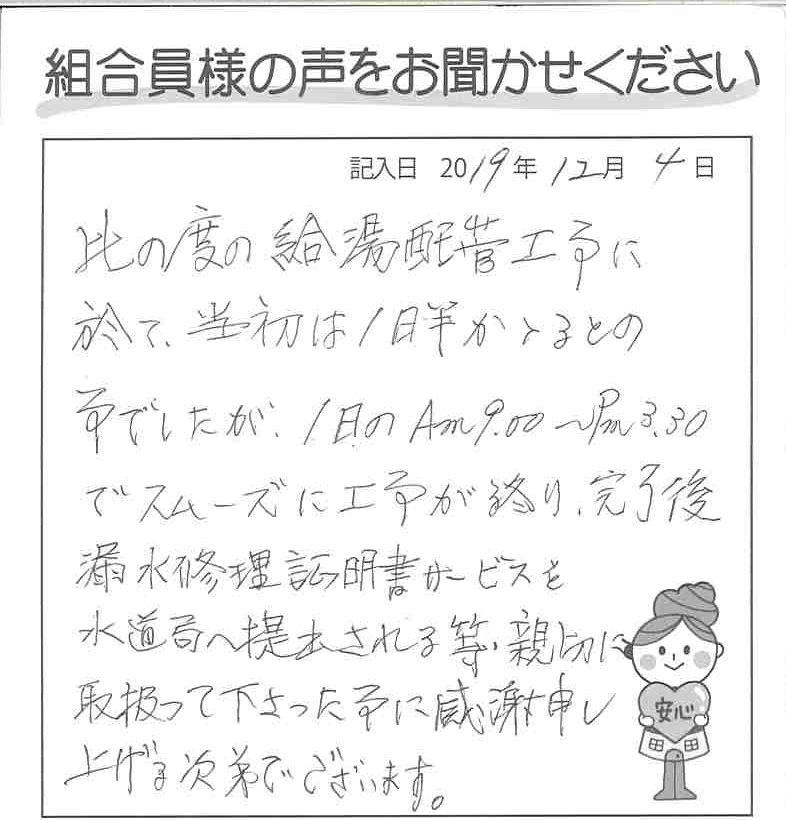 組合員様の声をお聞かせください
記入日 2019年 12月 4日
此の度の給湯配管工事に
於て、当初は1日半かゝるとの
事でしたが、1日のAm9.00～Pm3.30
でスムーズに工事が終り、完了後
漏水修理証明書サービスを
水道局へ提出される等、親切に
取扱って下さった事に感謝申し
上げる次第でございます。
安心